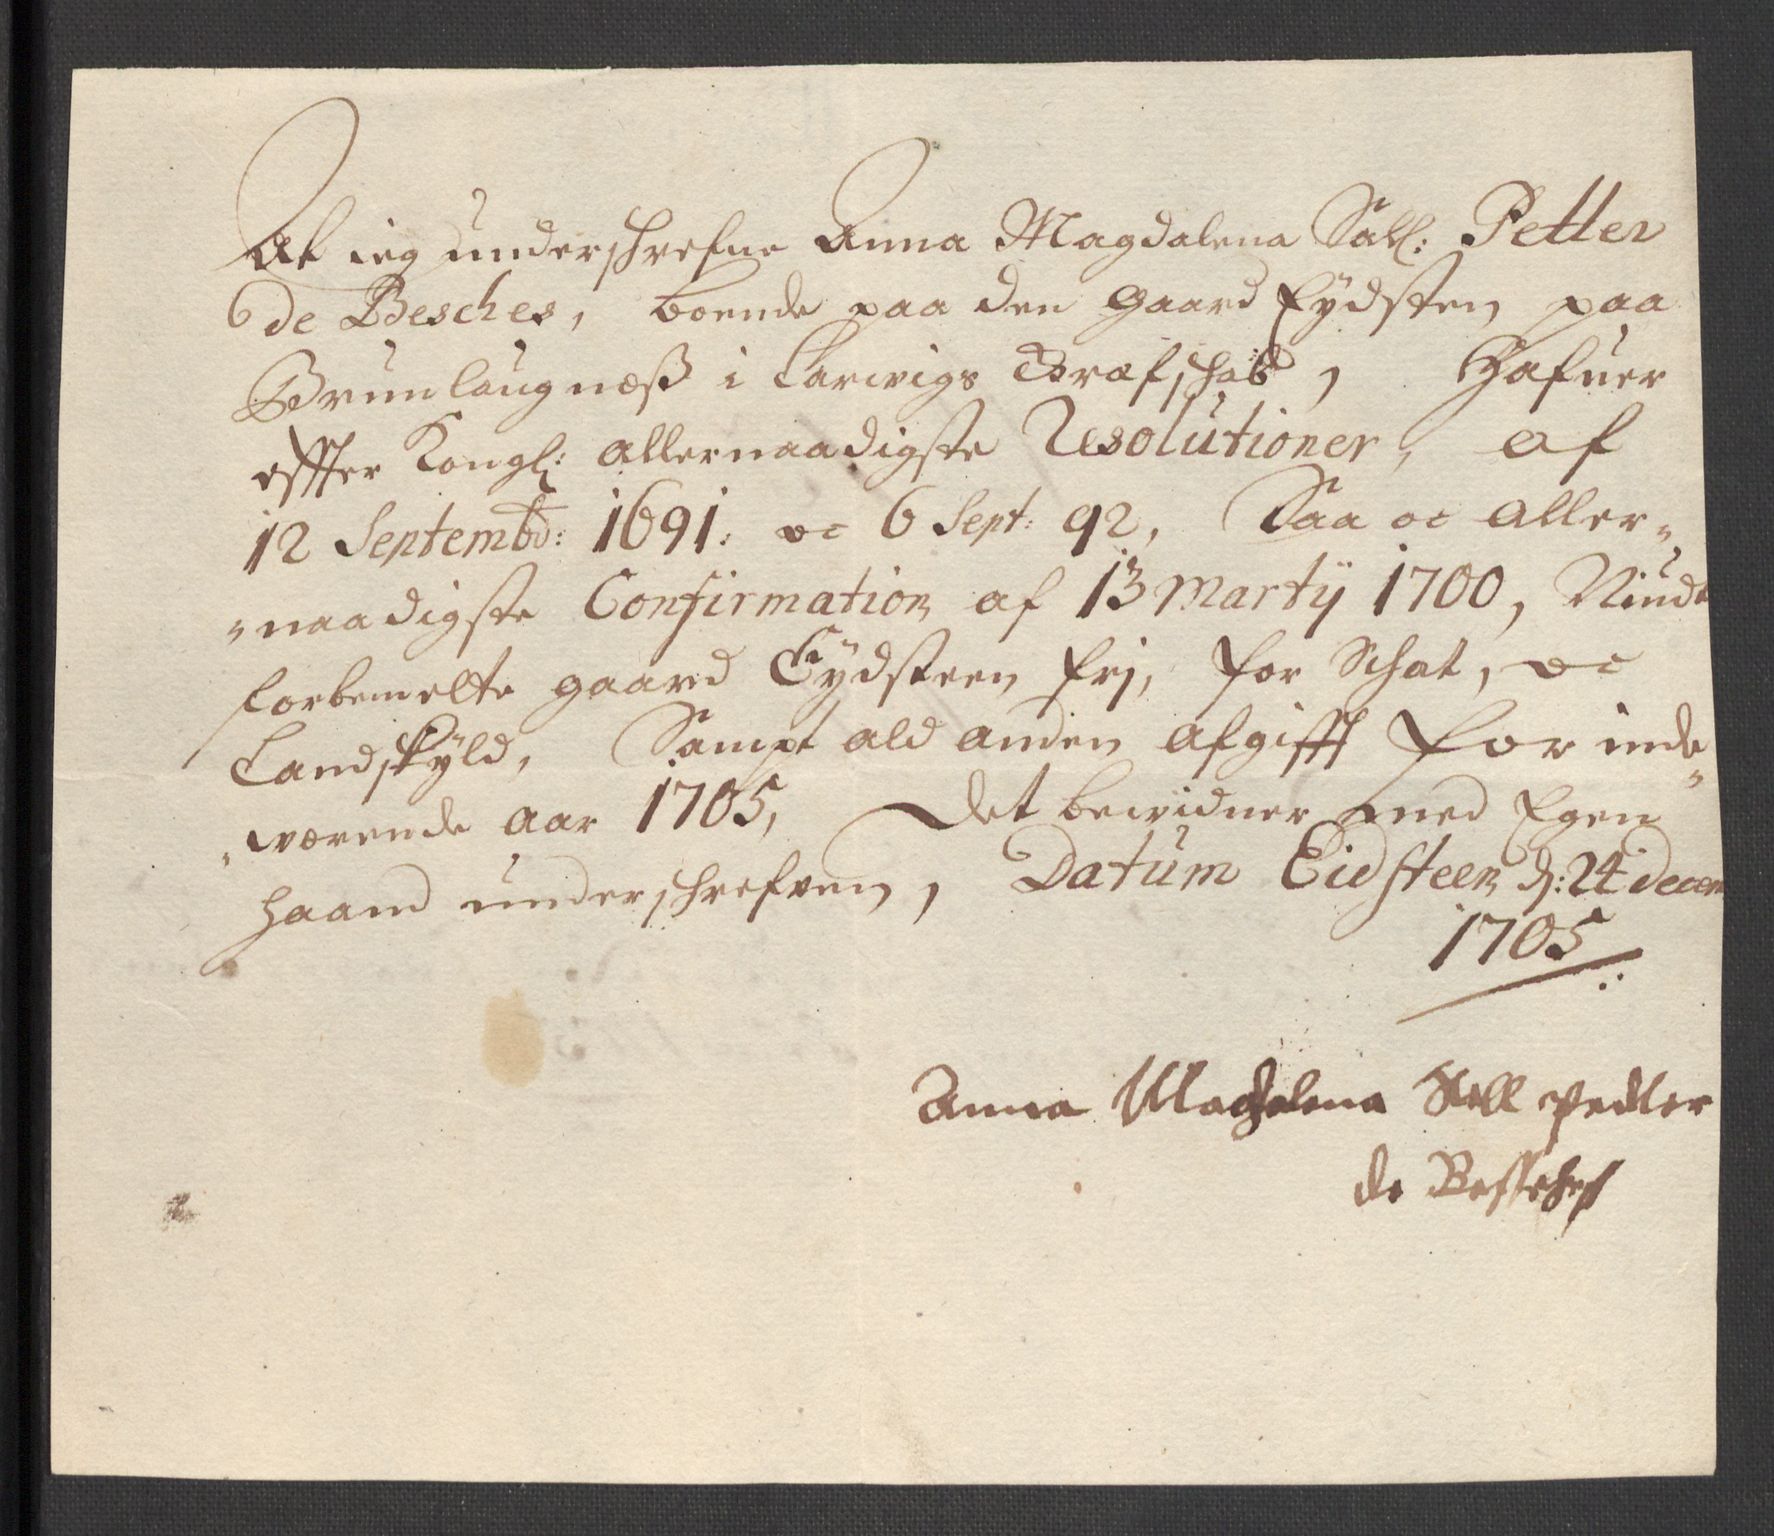 At ieg underschrefne Anna Magdalena Sall: Petter
de Besches, boende paa den gaard Eydsten paa
Brunlaugnæß i Larvigs Grafschab, Hafuer
effter Kongl: allernaadigste Resolutioner, af
12 Septembr: 1691. oc 6 Sept: 92, Saa oc aller„
„naadigste Confirmation af 13 Martij 1700, Niudt
forbemelte gaard Eydsteen frj, for Schat, oc
Landskyld, Sampt ald anden afgifft for inde„
„værende aar 1705, Det bevidner med Egen
haand underschrefven, Datum Eidsteen d: 24 decem
1705
Anna Magdalena Sall Pedter
de Besches